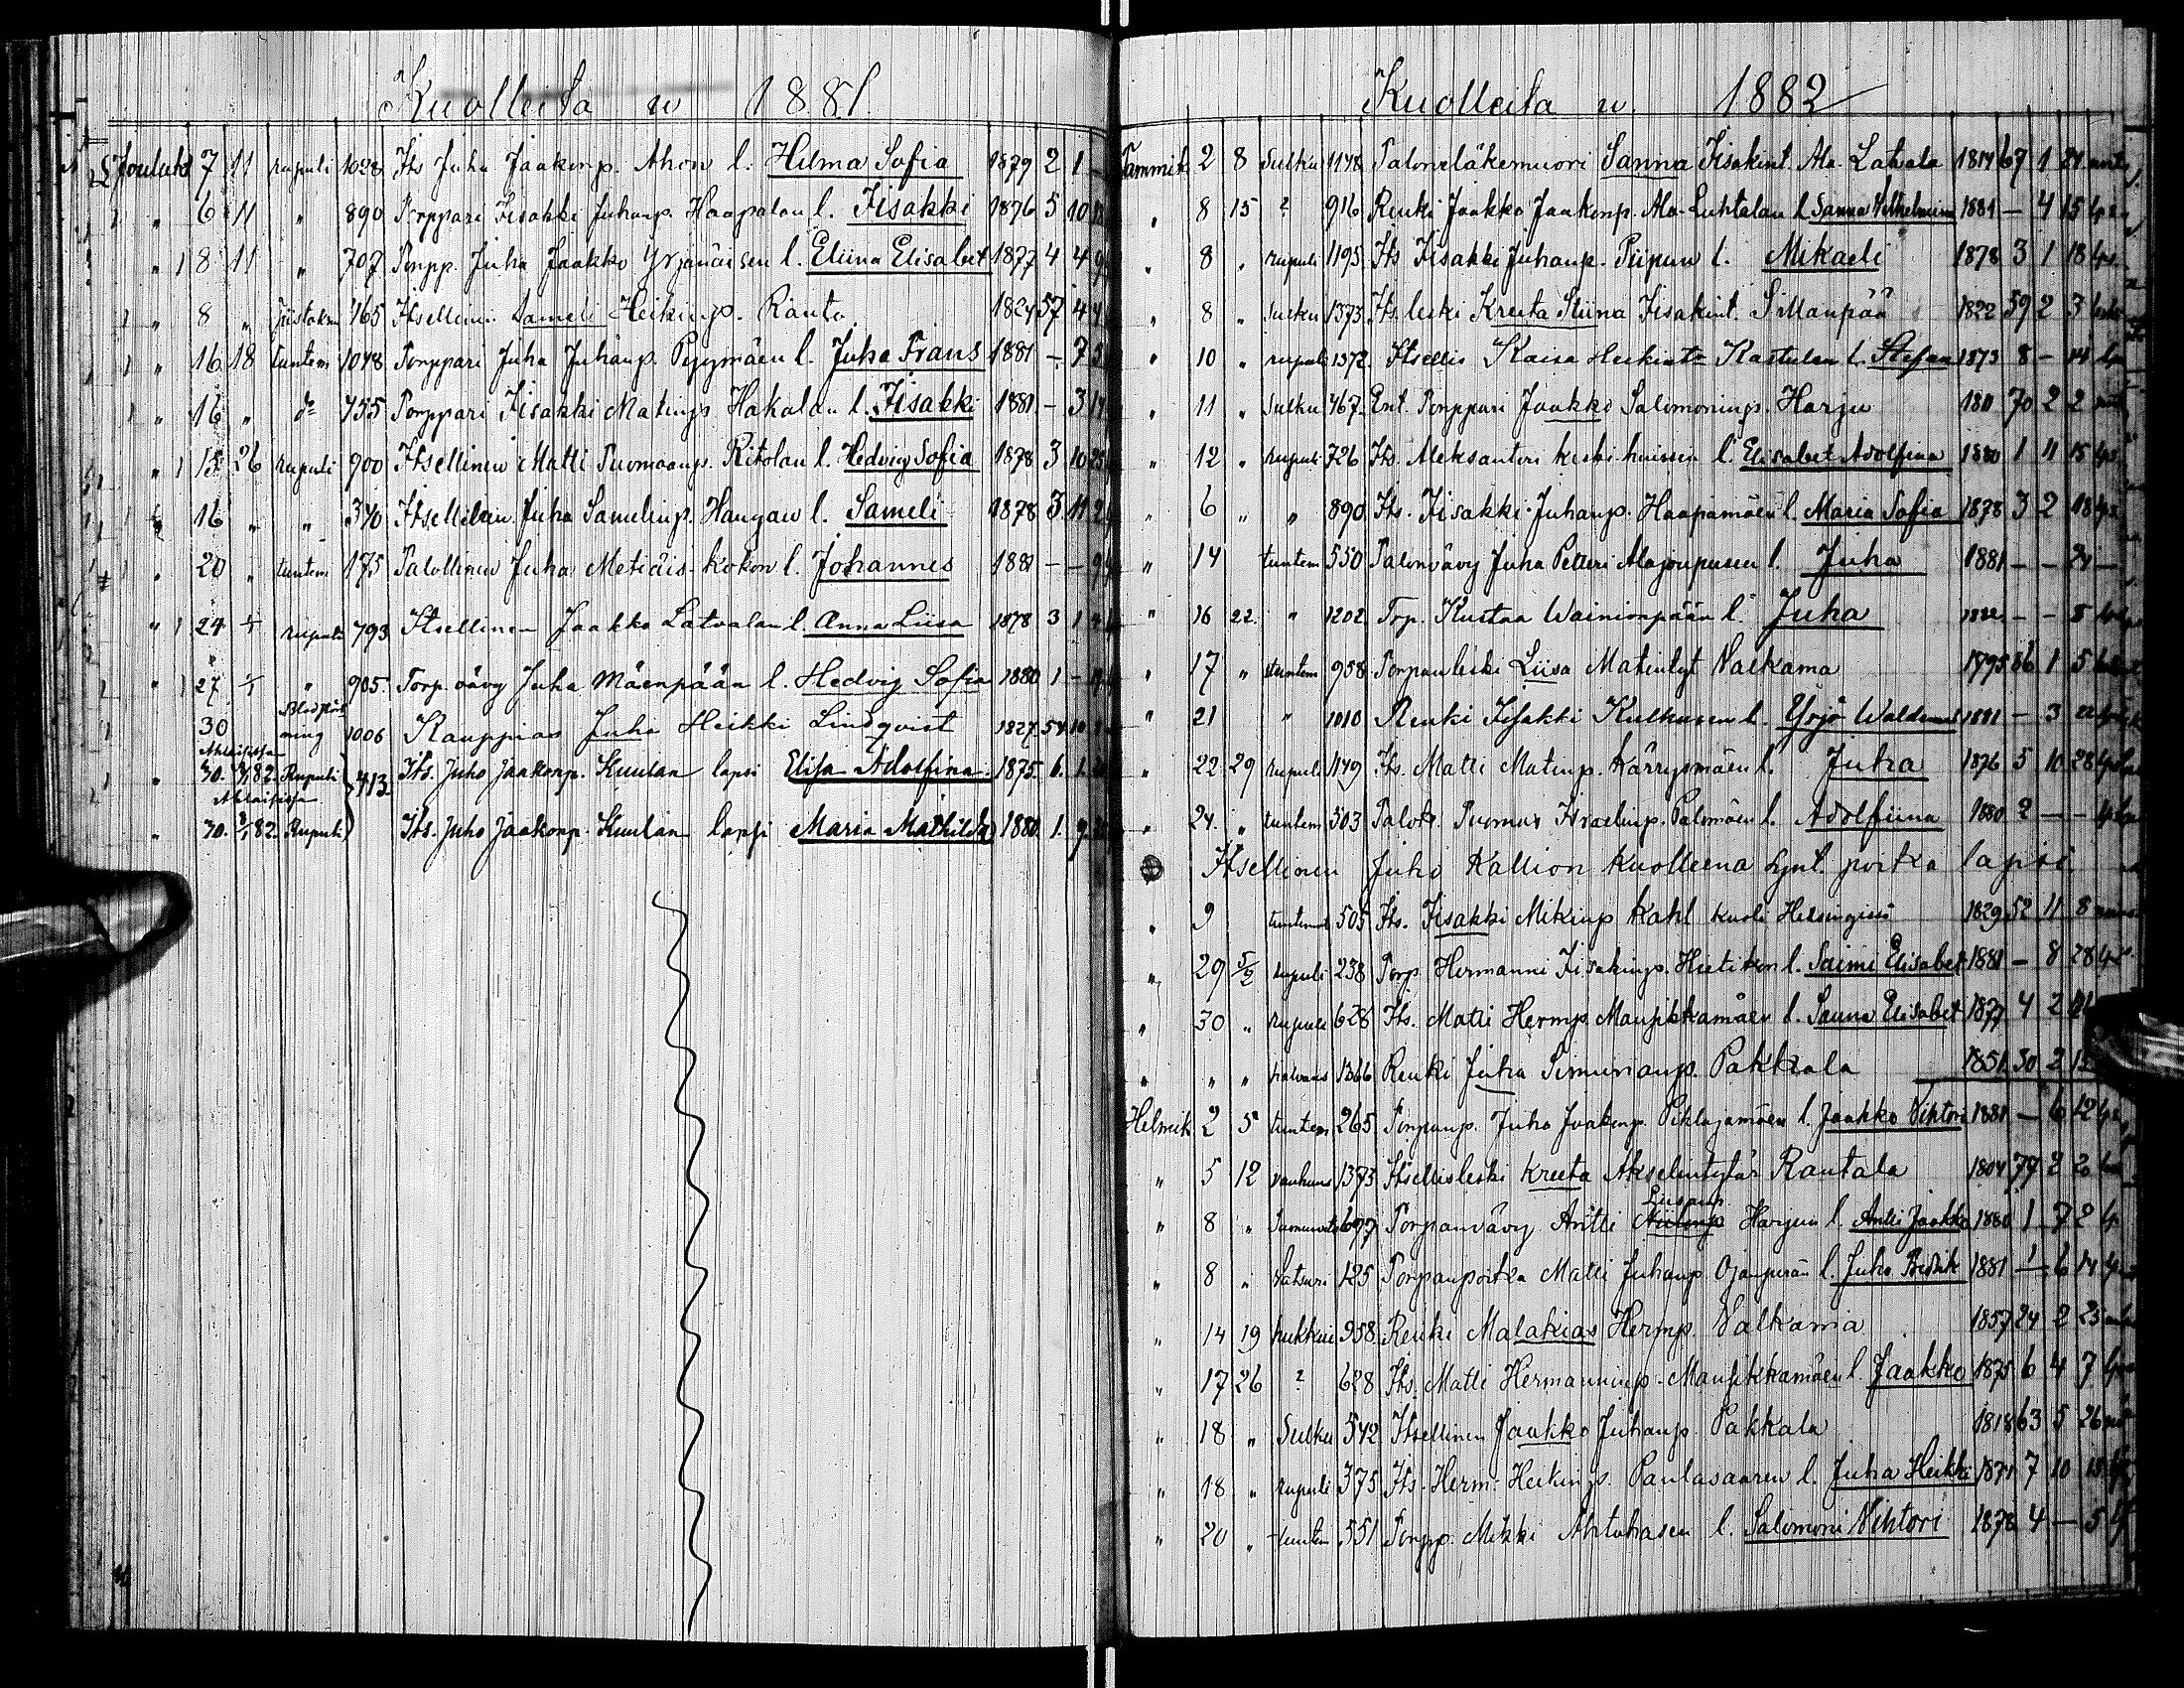 Kuolleita w 1881.
Jouluk 7 11 rupuli 1028 Its Juha Jaakonp. Ahon l. Hilma Sofia 1879 2 1 -
" 6 11 " 890 Torppari Iisakki Juhanp. Haapalan l. Iisakki 1876 5 10
" 8 11 " 707 Torpp. Juha Jaakko Yrjänäisen l. Eliina Elisabet 1877 4 4 9
" 8 " 165 Itsellinen Sameli Heikinp. Ranta 1824 57 4
" 16 18 tuntem 1048 Torppari Juha Juhanp. Pyymäen l. Juha Frans 1881 - 7
" 16 " do 455 Torppari Iisakki Matinp. Hakalan l. Iisakki 1881 - 3
" 15 26 rupuli 900 Itsellinen Matti Tuomaanp. Ritolan l. Hedvig Sofia 1878 3 10 25
16 " " 340 Itsellisen Juha Samelinp. Hangan l. Sameli 1878 3 11
" 20 " tuntem 175 Talollinen Juha Metiäis-kokon l. Johannes 1881 - - 9
" 24 1/1 rupuli 793 Itsellinen Jaakko Latvalan l. Anna Liisa 1878 3 1
" 27 1/1 " 905. Torp. vävy Juha Mäenpään l. Hedvig Sofia 1880 1 -
30 1006 Kauppias Juha Heikki Lindqvist 1827 54 10
" 30. 82. Rupuli 413 Its. Juho Jaakonp. Kuulan lapsi Elisa Adolfina 1875. 6. 1.
" 30. 82. Rupuli Its. Juho Jaakonp. Kuulan lapsi Maria Mathilda 1880. 1. 9.
Kuolleita w. 1882
Tammik 2 8 Sulku 1148 Taloneläkemuori Sanna Iisakint. Ala-Latvala 1814 67 1 24
" 8 15 ? 916 Renki Jaakko Jaakonp. Ala-Luhtalan l. Sanna Vilhelmiina 1881 - 4 15
" 8 " rupuli 1195 Its Iisakki Juhanp. Piipun l. Mikaeli 1878 3 1 18
" 8 " Sulku 1373 Its. leski Kreeta Stiina Iisakint. Sillanpää 1822 59 2 3
" 10 " rupuli 1372 Itsellis Kaisa Heikint. Kastulan l. Stefan 1873 8 - 14
" 11 " Sulku 467. Ent. Torppari Jaakko Salomoninp. Harju 1811 70 2 2
" 12 " rupuli 726 Its. Aleksanteri keski-huissin l. Elisabet Adolfina 1880 1 11 15
" 6 " " 890 Its. Iisakki Juhanp. Haapamäen l. Maria Sofia 1878 3 2 18
" 14 tuntem 550 Talonvävy Juha Petteri Alajoupusen l. Juha 1881 - - 24
" 16 22. " 1202 Trp. Kustaa Wainionpään l. Juha 1882 - - 5
" 17 " tuntem 958 Torpanleski Liisa Matintyt Valkama 1795 86 1 5
" 21 " 1010 Renki Iisakki Kulkusen l. Yrjö Waldemar 1881 - 3 22
" 22 29 rupuli 1149 Its. Matti Matinp. Kärrysmäen l. Juha 1876 5 10 28
" 24. " tuntem 303 Talok. Tuomas Israelinp. Palomäen l. Adolfiina 1880 2 - -
Itsellinen Juho Kallion kuolleena synt. poika lapsi.
" 9 tuntemat 505 Its. Iisakki Mikinp Kahl kuoli Helsingissä 1829 52 11 8
" 29 5/2 rupuli 238 Torp. Hermanni Iisakinp. Hietikon l. Saimi Elisabet 1881 - 8 28
" 30 " rupuli 628 Its. Matti Hermp. Mansikkamäen l. Sanna Elisabet 1877 4 2
" " " halvaus 1366 Renki Juha Simunanp. Pakkala 1851 30 2
Helmik 2 5 tuntem 265 Torpanp. Juho Jaakonp. Pihlajamäen l. Jaakko Vihtori 1881 - 6 12
" 5 12 vanhuus 1373 Itsellisleski Kreeta Akselintytär Rautala 1804 77 2 20
Liisanp
" 8 " 697 Torpanvävy Antti Harjun l. Antti Jaakko 1880 1 7 2
" 8 " 125 Torpanpoika Matti Juhanp. Ojanperän l. Juho Fredrik 1881 - 6 14
" 14 19 hukkui 958. Renki Malakias Hermp. Valkama 1857 24 2 23
" 17 26 ? 628 Its. Matti Hermanninp. Mansikkamäen l. Jaakko 1875 6 4 7
" 18 " Sulku 542 Itsellinen Jaakko Juhanp. Pakkala 1818 63 5 26
" 18 " rupuli 375 Its. Herm. Heikinp. Pantasaaren l. Juha Heikki 1874 7 10 15
" 20 " tuntem 551 Torpp. Mikki Ahtohasen l. Salomoni Vihtori 1878 4 - 5